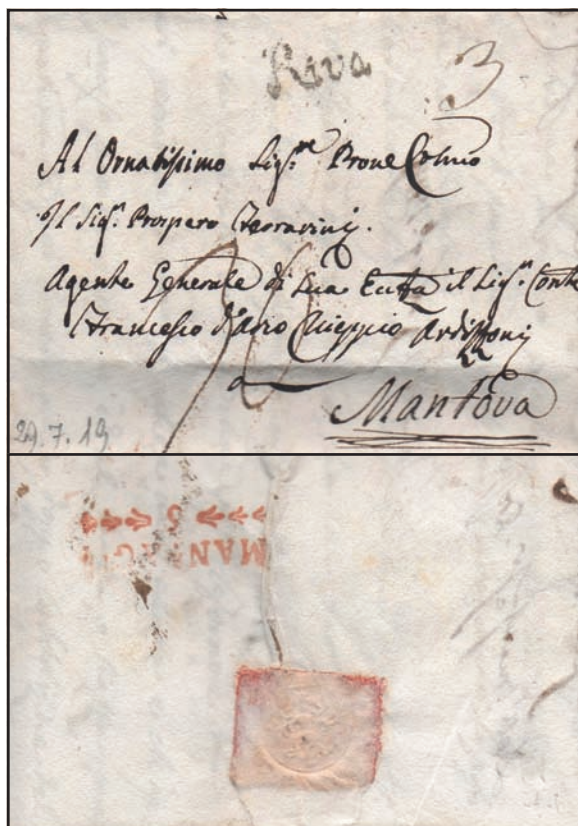 Riva 3
Al Ornatissimo Sig.re Prone Colmo
Il Sig.r Prospero
Agente Generale di Sua Ecc.za il Sig.r Conte
Francesco d'Arco Chieppio Ardizzoni
a
Mantova
29.7.19
5
MAN AG